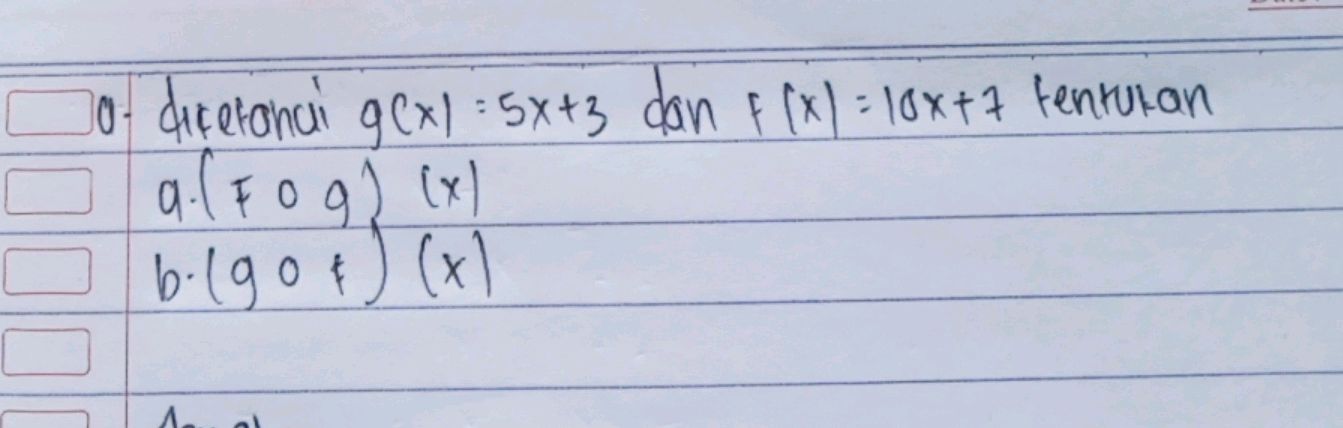 diketahui g(x) = 5x+3 dan F(x) = 10x+7 tentukan
a. (F o g) (x)
b. (g o f) (x)